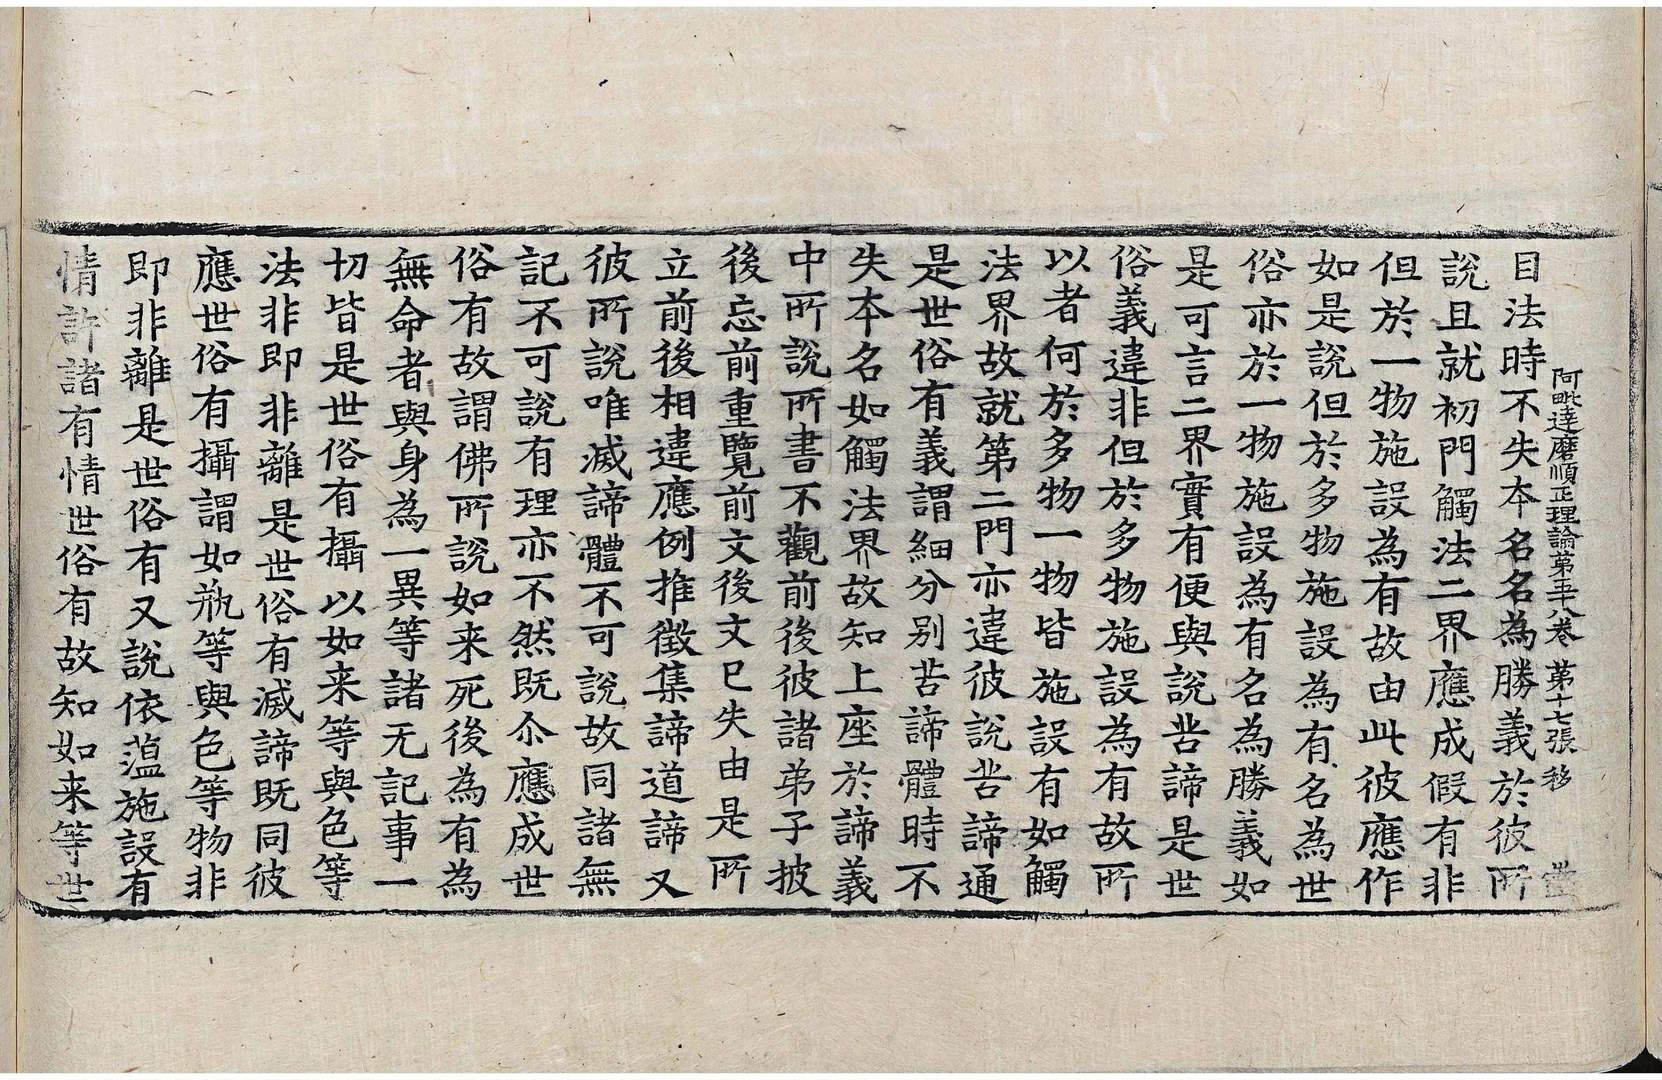 阿毗達磨順正理論第五十八卷 第十七張 移
目法時不失本名名為勝義於彼所
說且就初門觸法二界應成假有非
但於一物施設為有故由此彼應作
如是說但於多物施設為有名為世
俗亦於一物施設為有名為勝義如
是可言二界實有便與說苦諦是世
俗義違非但於多物施設為有故所
以者何於多物一物皆施設有如觸
法界故就第二門亦違彼說苦諦通
是世俗有義謂細分別苦諦體時不
失本名如觸法界故知上座於諦義
中所說所書不觀前後彼諸弟子披
後忘前重覽前文後文已失由是所
立前後相違應例推徵集諦道諦又
彼所說唯滅諦體不可說故同諸無
記不可說有理亦不然既尒應成世
俗有故謂佛所說如来死後為有為
無命者與身為一異等諸无記事一
切皆是世俗有攝以如来等與色等
法非即非離是世俗有滅諦既同彼
應世俗有攝謂如瓶等與色等物非
即非離是世俗有又說依薀施設有
情許諸有情世俗有故知如来等世